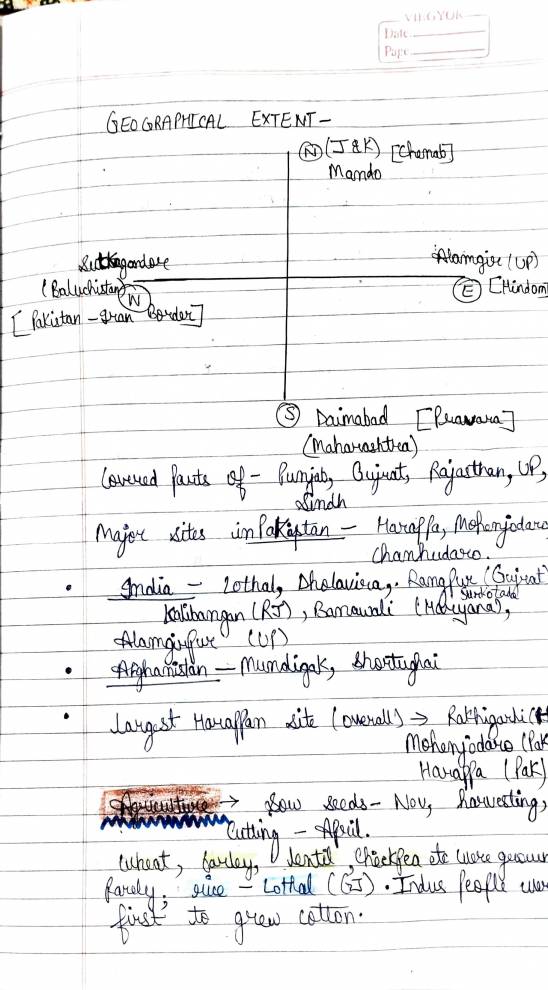 VIEGYOR
Date
Page
GEOGRAPHICAL EXTENT -
N (J & K) [Chenab]
Mando
Suktagandore
Alamgir (UP)
(Baluchistan) W
E [Hindom
[Pakistan - Iran Border]
S Daimabad [Pravara]
(Maharashtra)
Covered parts of - Punjab, Gujrat, Rajasthan, UP,
Sindh
Major sites in Pakistan - Harappa, Mohenjodaro
Chanhudaro.
• India - Lothal, Dholavira, Rangpur (Gujrat)
Surkotada
Kalibangan (RJ), Banawali (Haryana),
Alamgirpur (UP)
• Afghanistan - Mundigak, Shortughai
• Largest Harappan site (overall) → Rakhigarhi (H
Mohenjodaro (Pak
Harappa (Pak)
Agriculture → Sow seeds - Nov, harvesting,
Cutting - April.
wheat, barley, lentil, chickpea etc were grown
Rarely; rice - Lothal (GJ). Indus people wer
first to grew cotton.